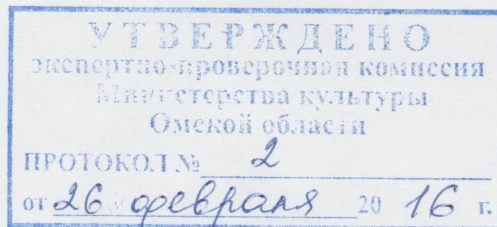 УТВЕРЖДЕНО
экспертно-проверочная комиссия
Министерства культуры
Омской области
ПРОТОКОЛ № 2
от 26 февраля 2016 г.